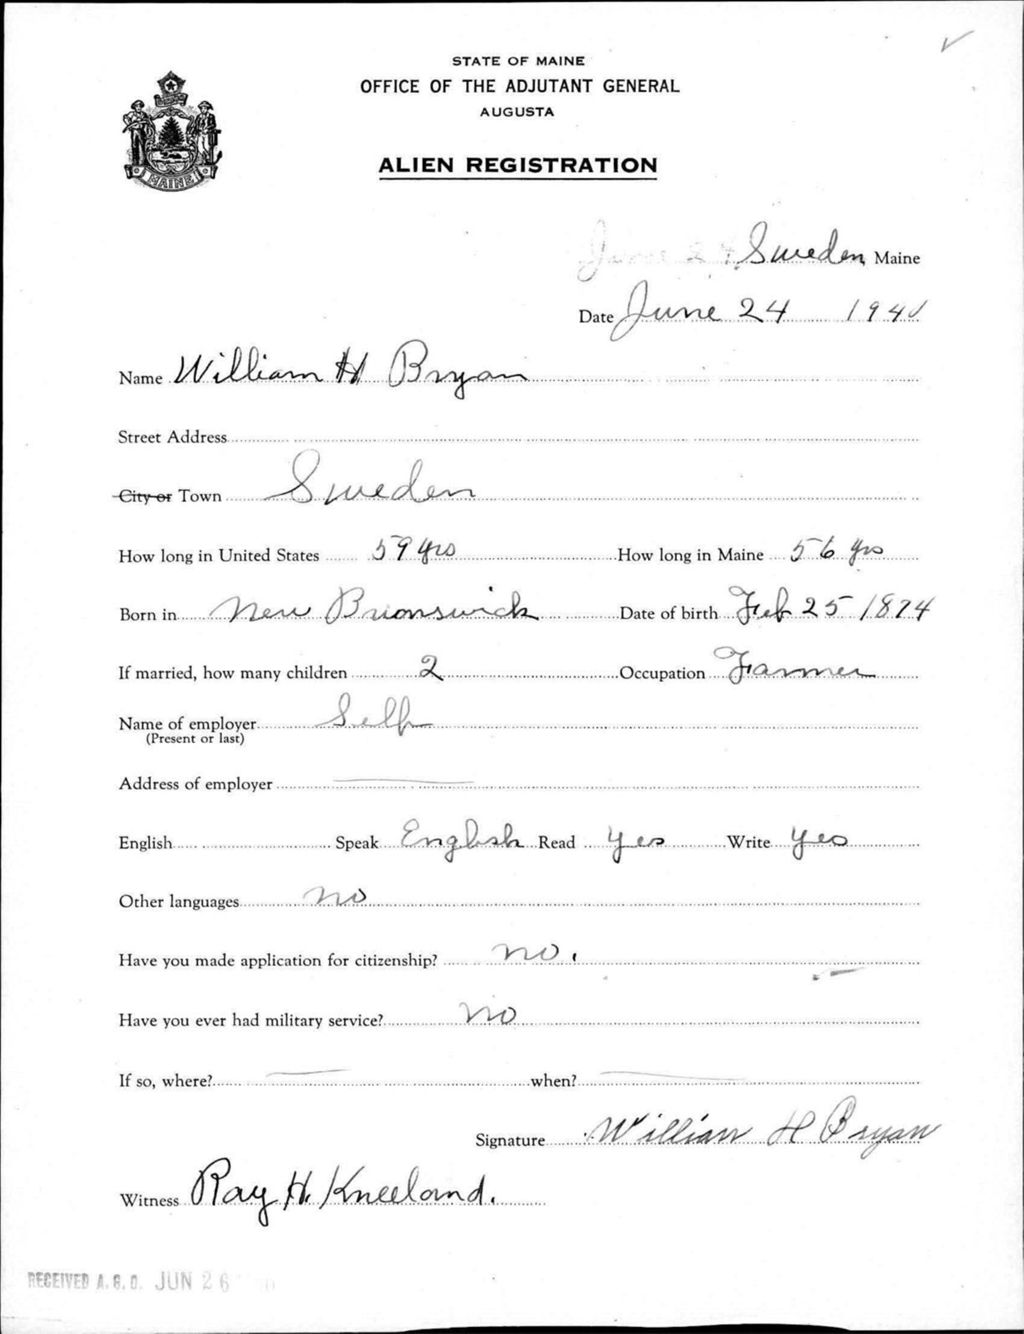 STATE OF MAINE
OFFICE OF THE ADJUTANT GENERAL
AUGUSTA
MAINE
ALIEN REGISTRATION
June 24 Sweden, Maine
Date June 24 1940
Name William H Bryan
Street Address
City or Town Sweden
How long in United States 59 yrs How long in Maine 56 yrs
Born in New Brunswick Date of birth Feb 25 1874
If married, how many children 2 Occupation Farmer
Name of employer Self
(Present or last)
Address of employer
English Speak English Read Yes Write Yes
Other languages no
Have you made application for citizenship? no.
Have you ever had military service? no
If so, where? when?
Signature William H Bryan
Witness Ray H. Kneeland.
RECEIVED A.G.O. JUN 26